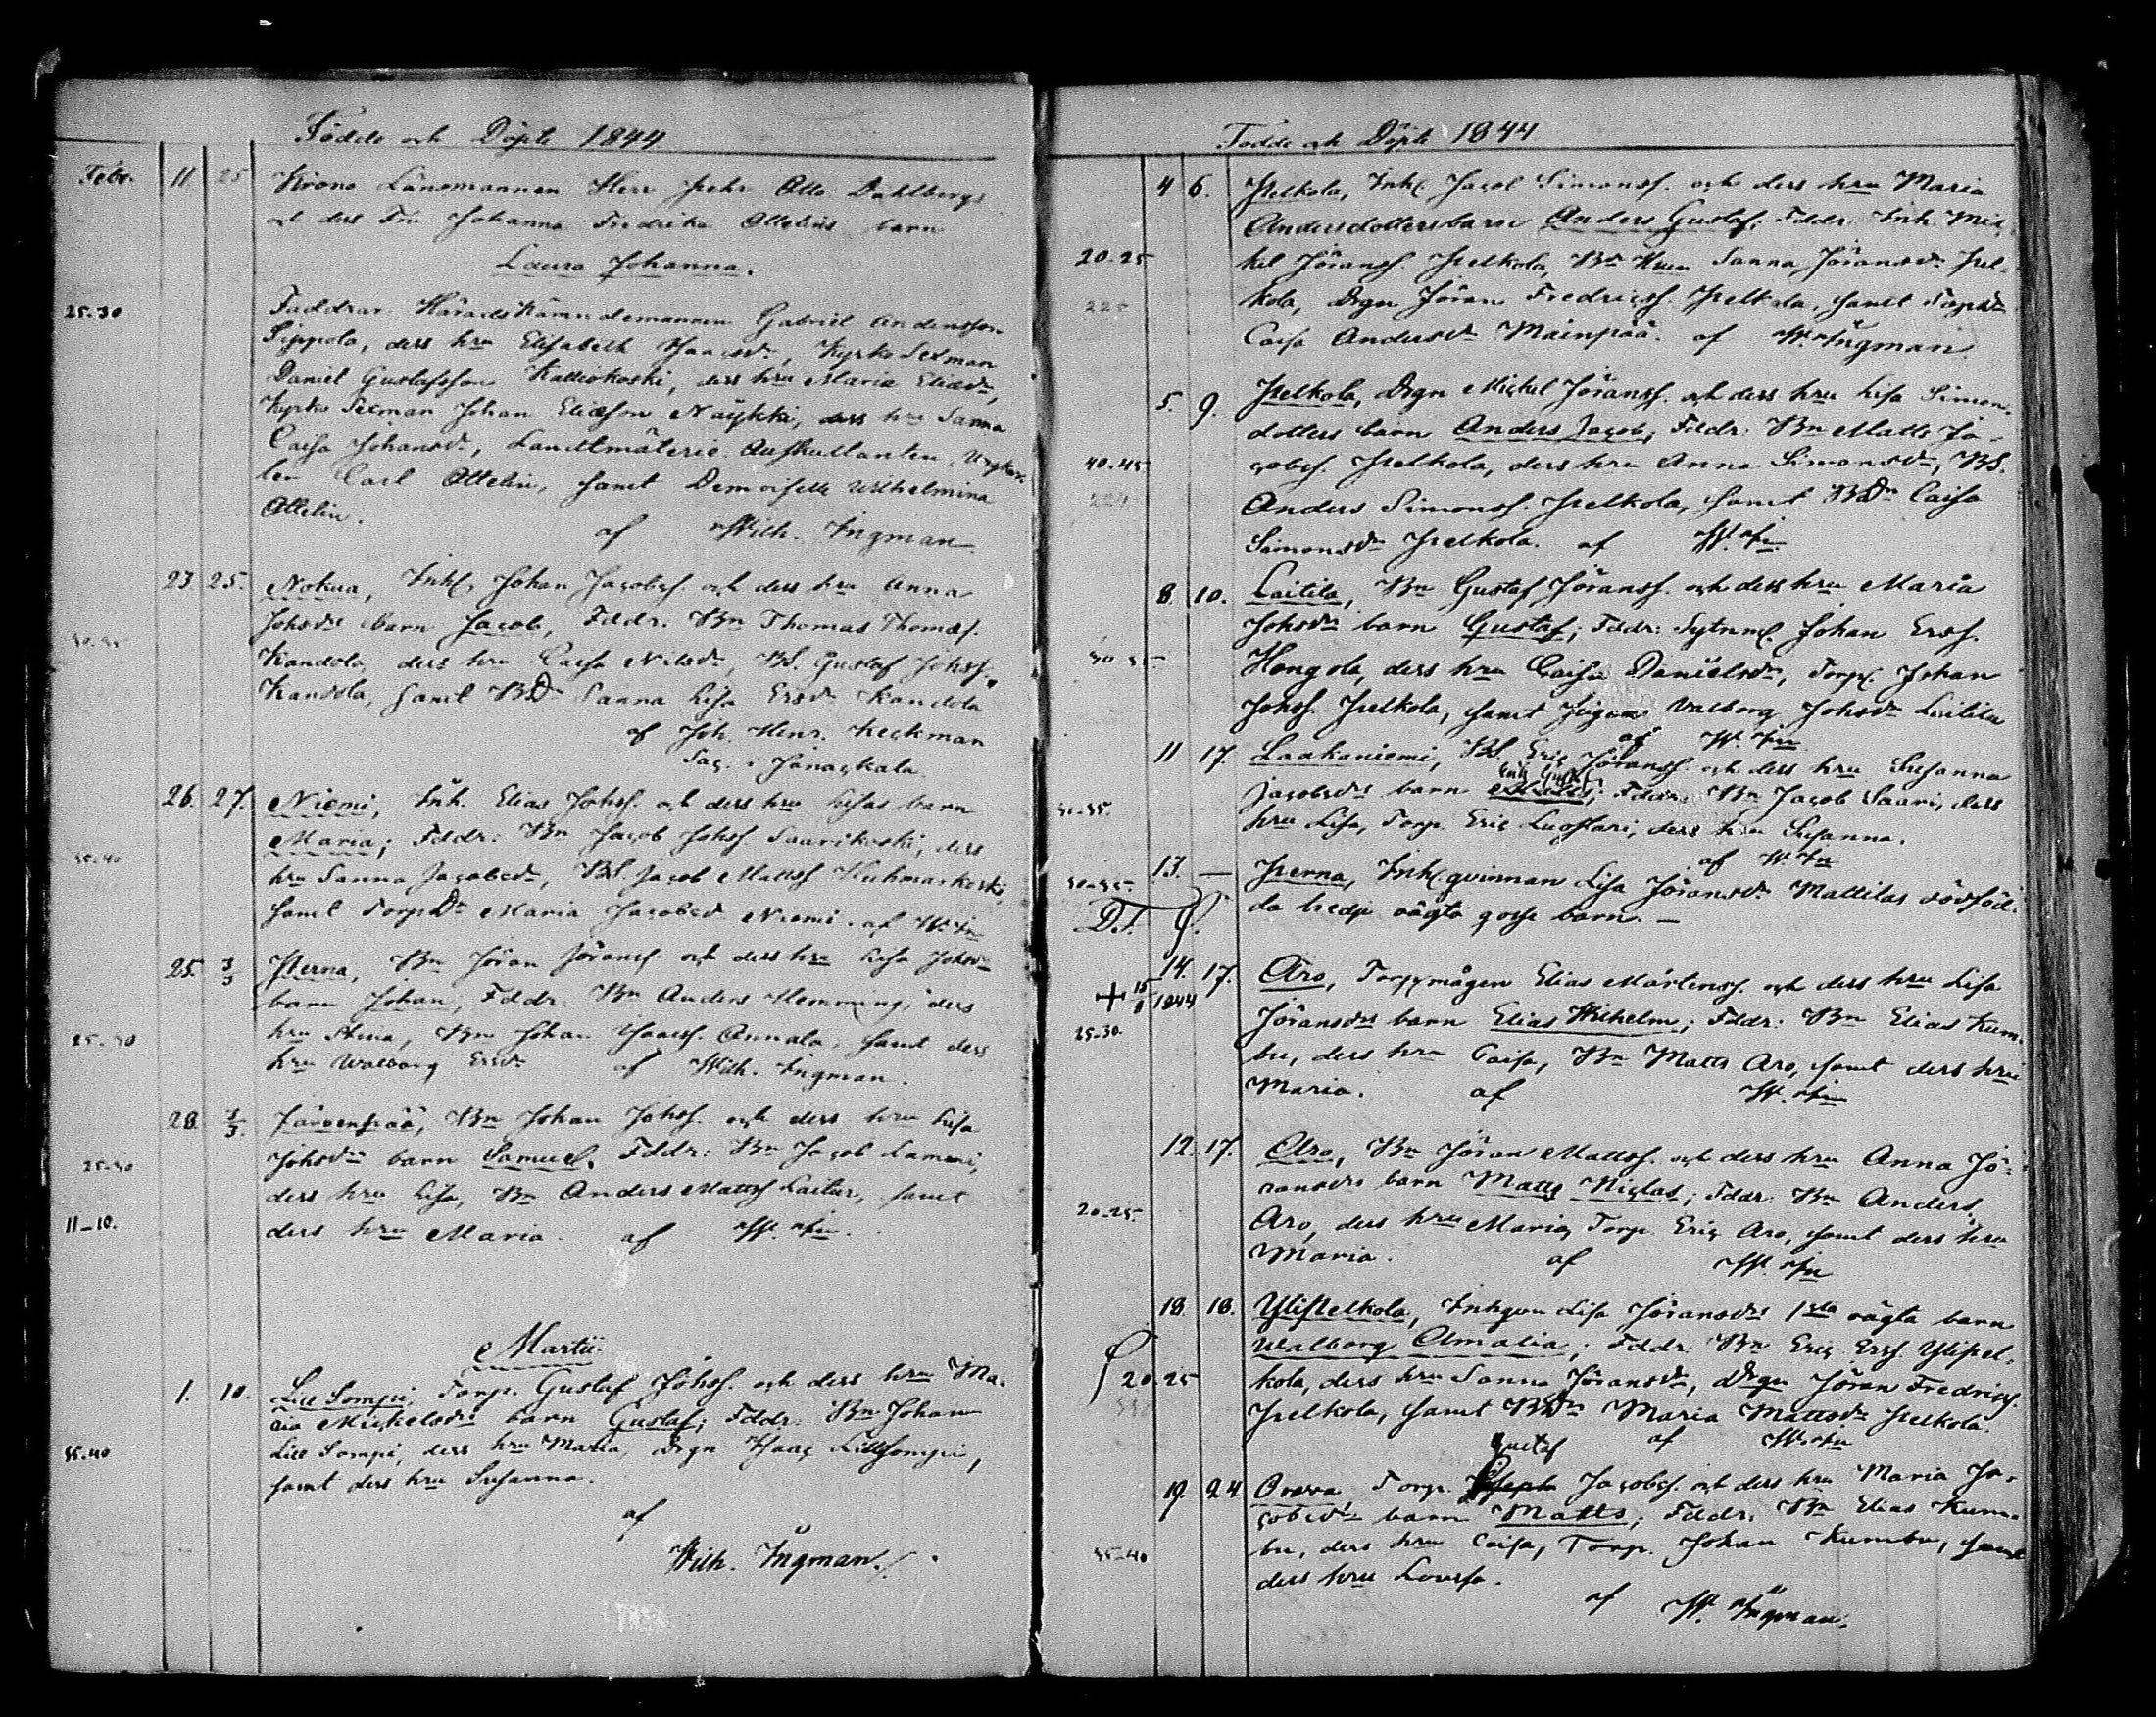 Födde och Döpte 1844
Febr. 11 25 Krono Länsmannen Herr Pehr Otto Dahlbergs
och dess Fru Johanna Fredrika Ottelins barn
Laura Johanna.
25-30 Faddrar Härads Nämndemannen Gabriel Andersson
Sippola, dess hru Elisabeth Isaacsdr, Kyrko Sexman
Daniel Gustafsson Kalliokoski, dess hru Maria Eliædr,
Kyrko Sexman Johan Eliæson Näykki, dess hru Sanna
Caisa Johansdr, Landtmäterie Auskultanten, Ungkar-
len Carl Ottelin, samt Demoiselle Wilhelmina
Ottelin.
af Wilh. Ingman
23 25. Nokua, Inh. Johan Jacobss. och dess hru Anna
Johsdrs barn Jacob, Fddr. Bn Thomas Thomæs.
Kandola, dess hru Caisa Nilsdr, BS. Gustaf Johss.
Kandola, samt BDr Sanna Lisa Ersdr Kandola
af Joh. Henr. Keckman
Sac. i Janackala.
26. 27. Niemi, Inh. Elias Johss. och dess hru Lisas barn
35.40 Maria; Fddr: Bn Jacob Johss Saarikoski, dess
hru Sanna Jacobsdr, BS. Jacob Mattss Kuhmarkoski
samt TorpDr Maria Jacobsdr Niemi. af W. In
25. 3/3 Perna, Bn Jöran Jöranss. och dess hru Lisa Johsdrs
barn Johan, Fddr. Bn Anders Hemming, dess
25-30 hru Anna, Bn Johan Isaacss. Annala, samt dess
hru Walborg Ersdr af Wilh. Ingman.
28. 3/3. Järvenpää, Bn Johan Johss. och dess hru Lisa
25-30 Johsdrs barn Samuel, Fddr: Bn Jacob Lammi,
dess hru Lisa, Bn Anders Mattss Laitur, samt
11-10. dess hru Maria. af W. In.
Martii
1. 10. Lill Sompi, Torp. Gustaf Johss. och dess hru Ma-
ria Mickelsdrs barn Gustaf; Fddr: Bn Johan
35.40 Lill Sompi, dess hru Maria, Drgn Isaac Lillsompi,
samt dess hru Susanna.
af
Wilh. Ingman.
Födde och Döpte 1844
4 6. Pelkola, Inh. Jacob Simonss. och dess hru Maria
Andersdotters barn Anders Gustaf; Fddr: Inh. Mic-
20-25 kel Jöranss. Pelkola, Bn Sanna Jöransdr Pel-
225 kola, Drgn Jöran Fredricss. Pelkola, samt Torpdr
Caisa Andersdr Mäinpää. af W. Ingman
5. 9 Pelkola, Drgn Mickel Jöranss. och dess hru Lisa Simons-
dotters barn Anders Jacob; Fddr: Bn Matts Ja-
40-45 cobss. Pelkola, dess hru Anna Simonsdr, BS.
224 Anders Simonss. Pelkola, samt BDr Caisa
Simonsdr Pelkola. af W. In.
8. 10. Laitila, Bn Gustaf Jöranss. och dess hru Maria
Johsdrs barn Gustaf; Fddr: Sytnm. Johan Erss.
Hongola, dess hru Caisa Danielsdr, Torp. Johan
Johss. Pelkola, samt Pigan Valborg Johsdr Laitila
af W. In
11 17. Laakaniemi, BS. Eric Jöranss. och dess hru Susanna
Eric Gustaf
Jacobsdrs barn Matts; Fddr. Bn Jacob Saari, dess
hru Lisa, Torp. Eric Luoslari, dess hru Susanna.
af W. In
13. — Perna, Inh. qvinnan Lisa Jöransdr Mattilas dödföd-
da tredje oägta gosse barn. —
D.F.
14. 17. Aro, Torpmågen Elias Mårtenss. och dess hru Lisa
+ 15/8 1844
25-30. Jöransdrs barn Elias Wilhelm; Fddr: Bn Elias Kum-
bu, dess hru Caisa, Bn Matts Aro, samt dess hru
Maria. af W. In
12. 17. Aro, Bn Jöran Mattss. och dess hru Anna Jö-
ransdrs barn Matts Niclas; Fddr: Bn Anders
20-25. Aro, dess hru Maria, Torp. Eric Aro, samt dess hru
Maria. af W. In
18. 18. Ylipelkola, Inhqvn Lisa Jöransdrs 1sta oägta barn
Walborg Amalia; Fddr: Bn Eric Erss. Ylipel-
20-25 kola, dess hru Sanna Jöransdr, Drgn Jöran Fredricss.
Pelkola, samt BDr Maria Mattsdr Pelkola.
af W. In
Gustaf
19. 24 Orava Torp. Joseph Jacobss. och dess hru Maria Ja-
cobsdrs barn Matts; Fddr. Bn Elias Kum-
35-40 bu, dess hru Caisa, Torp. Johan Kumbu, samt
dess hru Lovisa.
af W. Ingman.